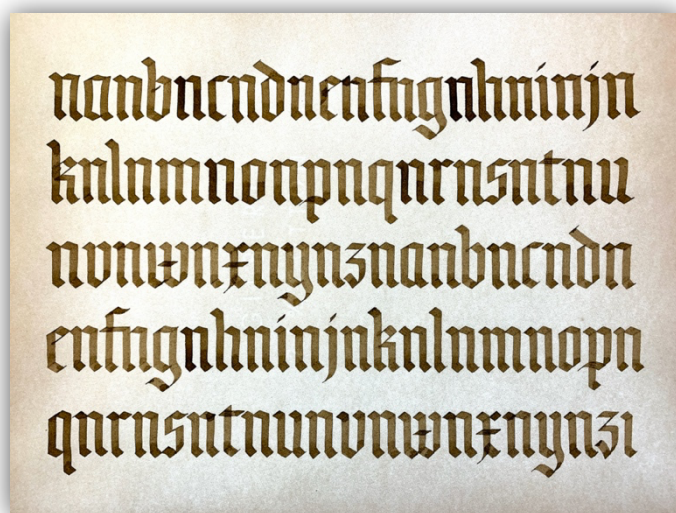 nanbncndnenfngnhninjn
knlnmnonpnqnrnsntnu
nvnwnxnynznanbncndn
enfngnhninjnknlnmnopn
qnrnsntnunvnwnxnynzı